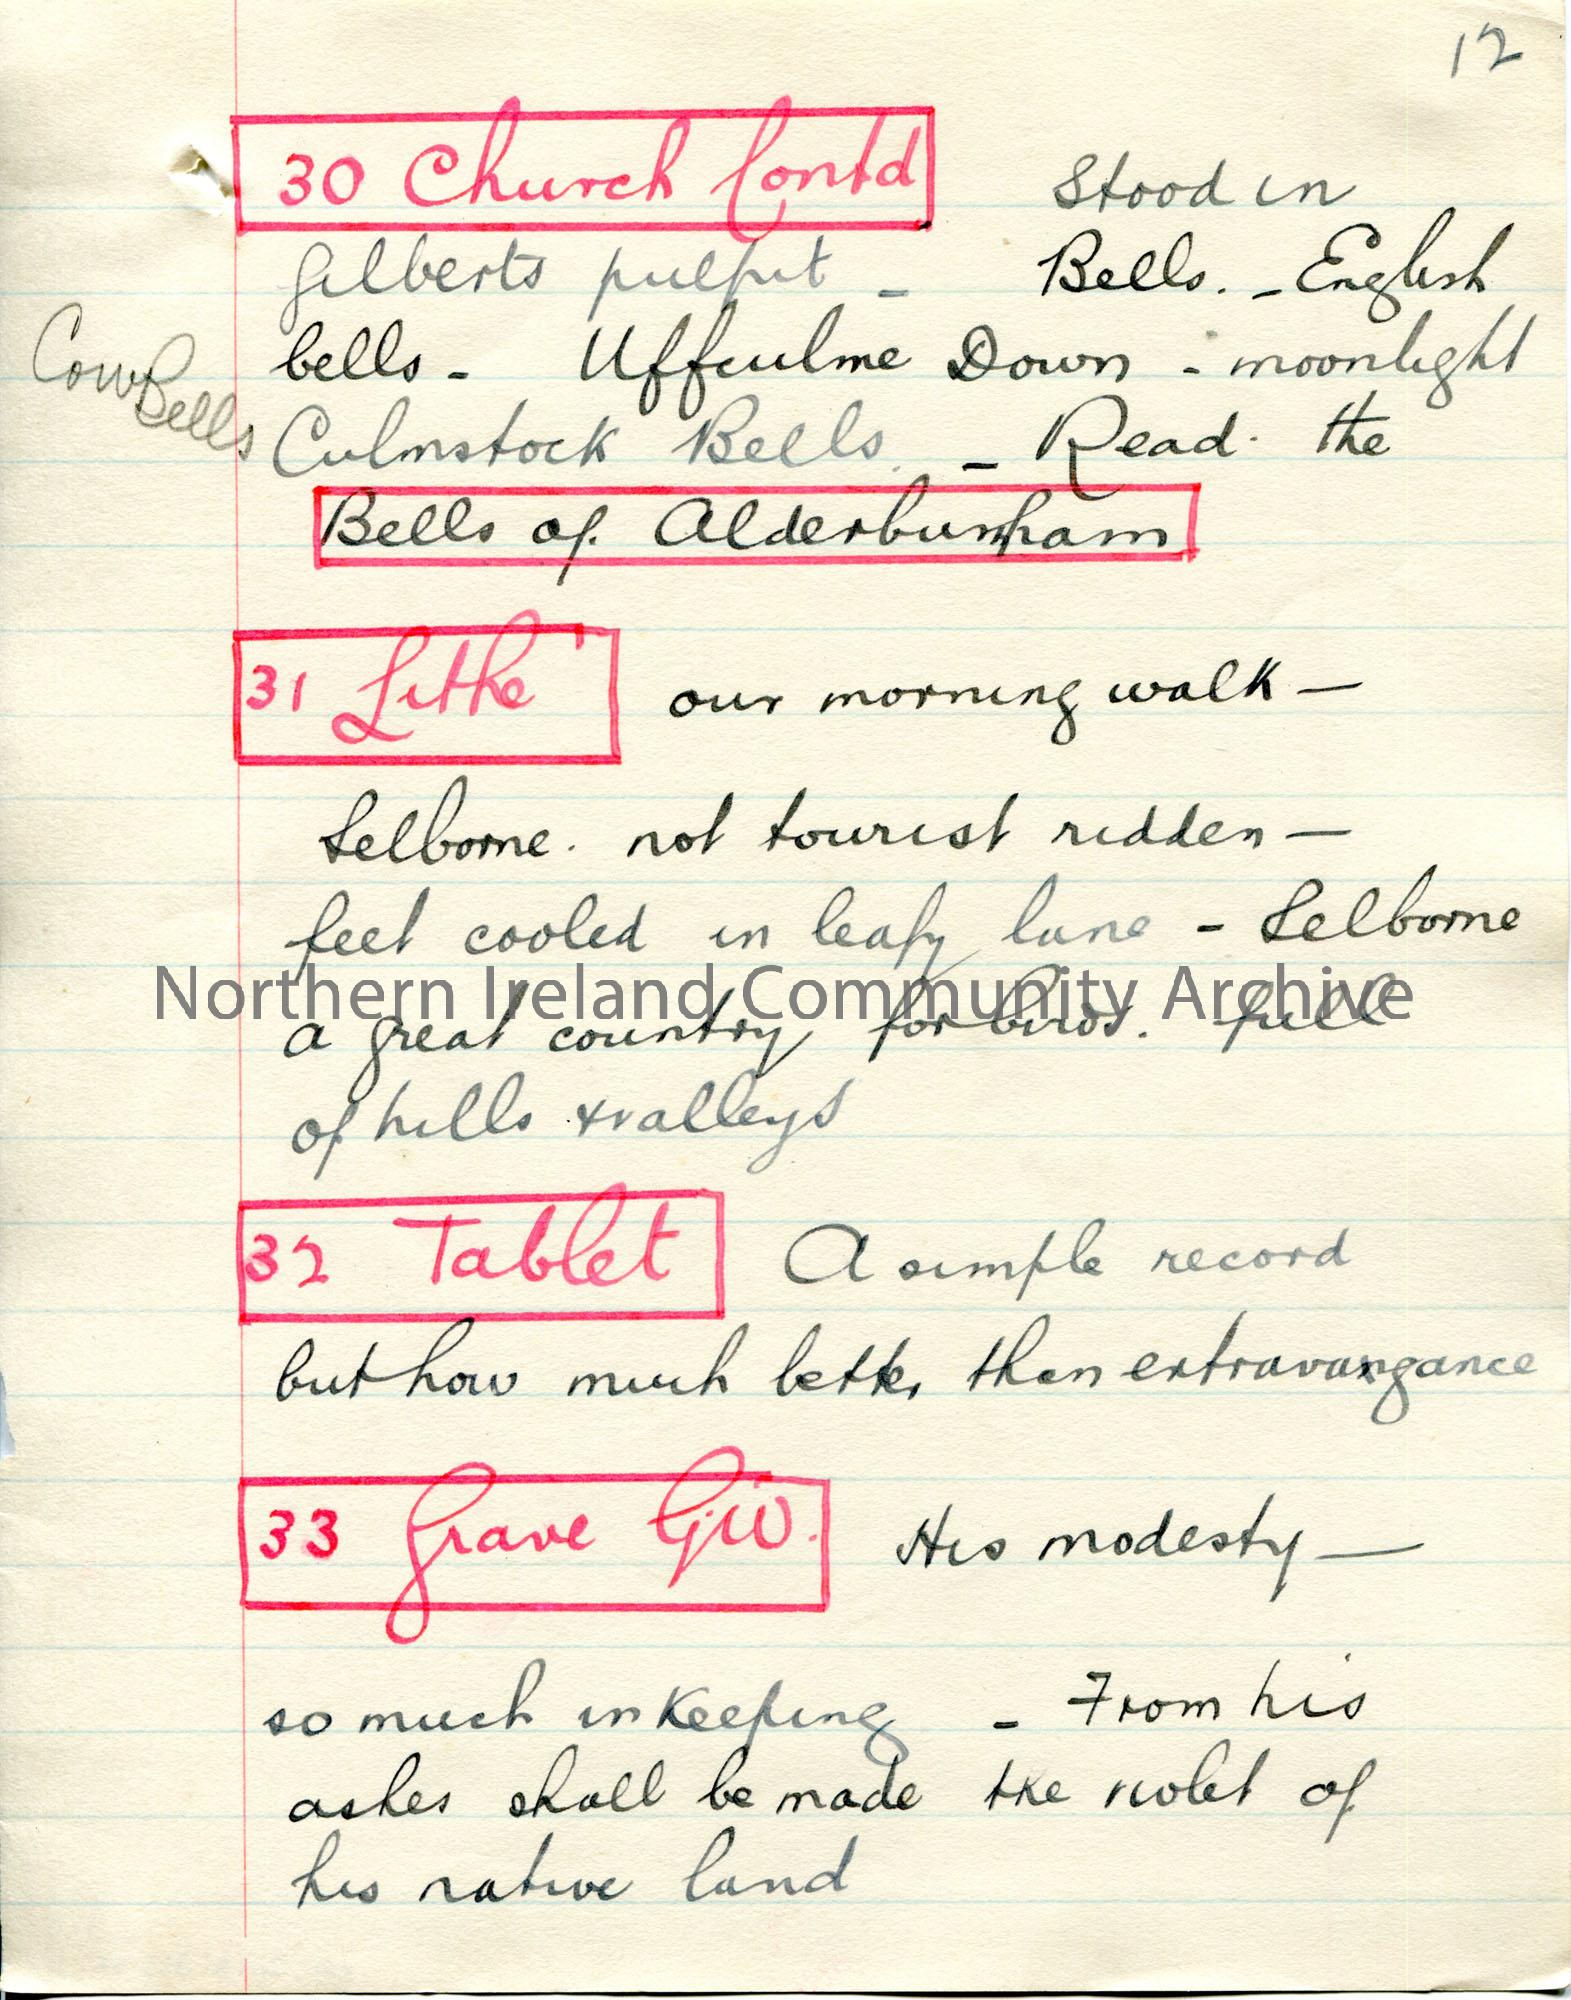 12
30 Church Contd Stood in
Gilberts pulpit - Bells. - English
bells - Uffculme Down - moonlight
Cow Bells
Culmstock Bells. - Read the
Bells of Alderburnham
31 Lithe our morning walk -
Selborne. not tourist ridden -
feet cooled in leafy lane - Selborne
Northern Ireland Community Archive
a great country for birds. full
of hills & valleys
32 Tablet A simple record
but how much better than extravangance
33 Grave G.W. His modesty -
so much in Keeping - From his
ashes shall be made the violet of
his native land